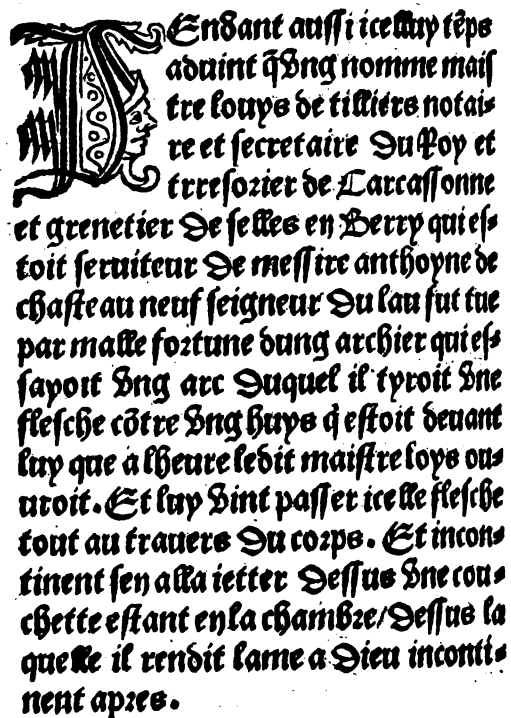 PEndant aussi icelluy tẽps
aduint q̃ vng nomme mais
tre louys de tilliers notai-
re et secretaire du Roy et
trresorier de Carcassonne
et grenetier de selles en Berry qui es-
toit seruiteur de messire anthoyne de
chasteau neuf seigneur du lau fut tue
par malle fortune dung archier qui es-
sayoit vng arc duquel il tyroit vne
flesche cõtre vng huys q̃ estoit deuant
luy que a lheure ledit maistre loys ou-
uroit. Et luy vint passer icelle flesche
tout au trauers du corps. Et incon-
tinent sen alla ietter dessus vne cou-
chette estant en la chambre/dessus la
quelle il rendit lame a dieu inconti-
nent apres.